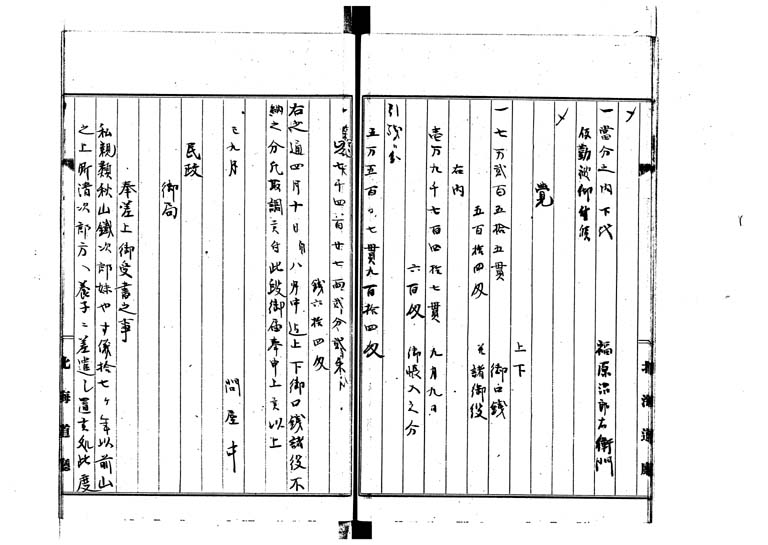 〆
一當分之内下代
福原治郎右衛門
仮勤被仰付候
〆
覚
上下
一七万弐百五拾五貫 御口銭
五百拾四匁 并諸御役
右内
壱万九千七百四拾七貫 九月九日
六百匁 御帳入之分
引残而
五万五百〇七貫九百拾四匁
七千四百廿七両弐分弐朱ト
銭六拾四匁
右之通四月十日ゟ八月中迄上下御口銭諸役不
納之分凡取調子付此段御届奉申上候以上
巳九月
問屋中
民政
御局
奉差上御受書之事
私親類秋山鐵次郎妹やす儀拾七ヶ年以前山
之上所清次郎方へ養子ニ差遣し置候処此度
北海道廳
北海道廳